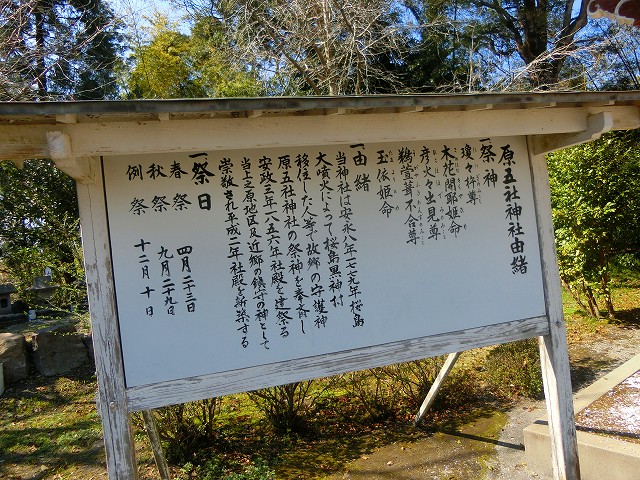 原五社神社由緒
一祭神
瓊々杵尊
木花開耶姫命
彦火々出見尊
鵜萱葺不合尊
玉依姫命
一由緒
当神社は安永八年一七七九年桜島
大噴火によって桜島黒神村
移住した人等が故郷の守護神
原五社神社の祭神を奉食し
安政三年一八五六年社殿を建祭る
当上之原地区及近郷の鎮守の神として
崇敬され平成二年社殿を新築する
一祭日
春祭 四月二十三日
秋祭 九月二十九日
例祭 十二月十日